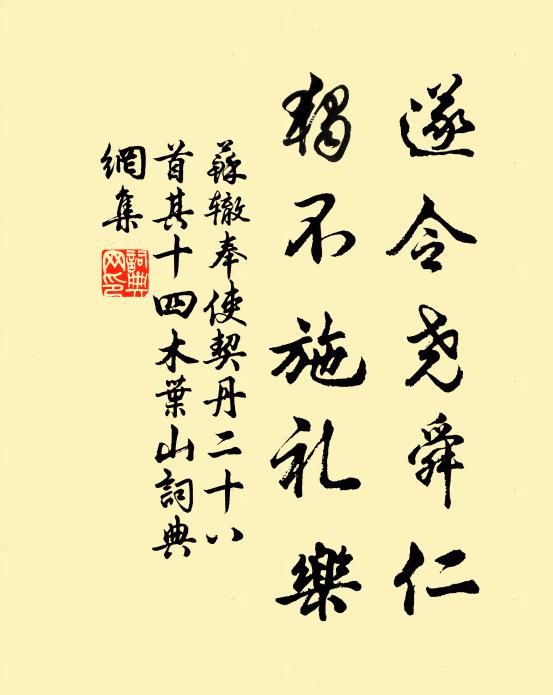 遂令尧舜仁
独不施礼樂
蘇辙奉使契丹二十八
首其十四木葉山詞典
網集
詞典网印